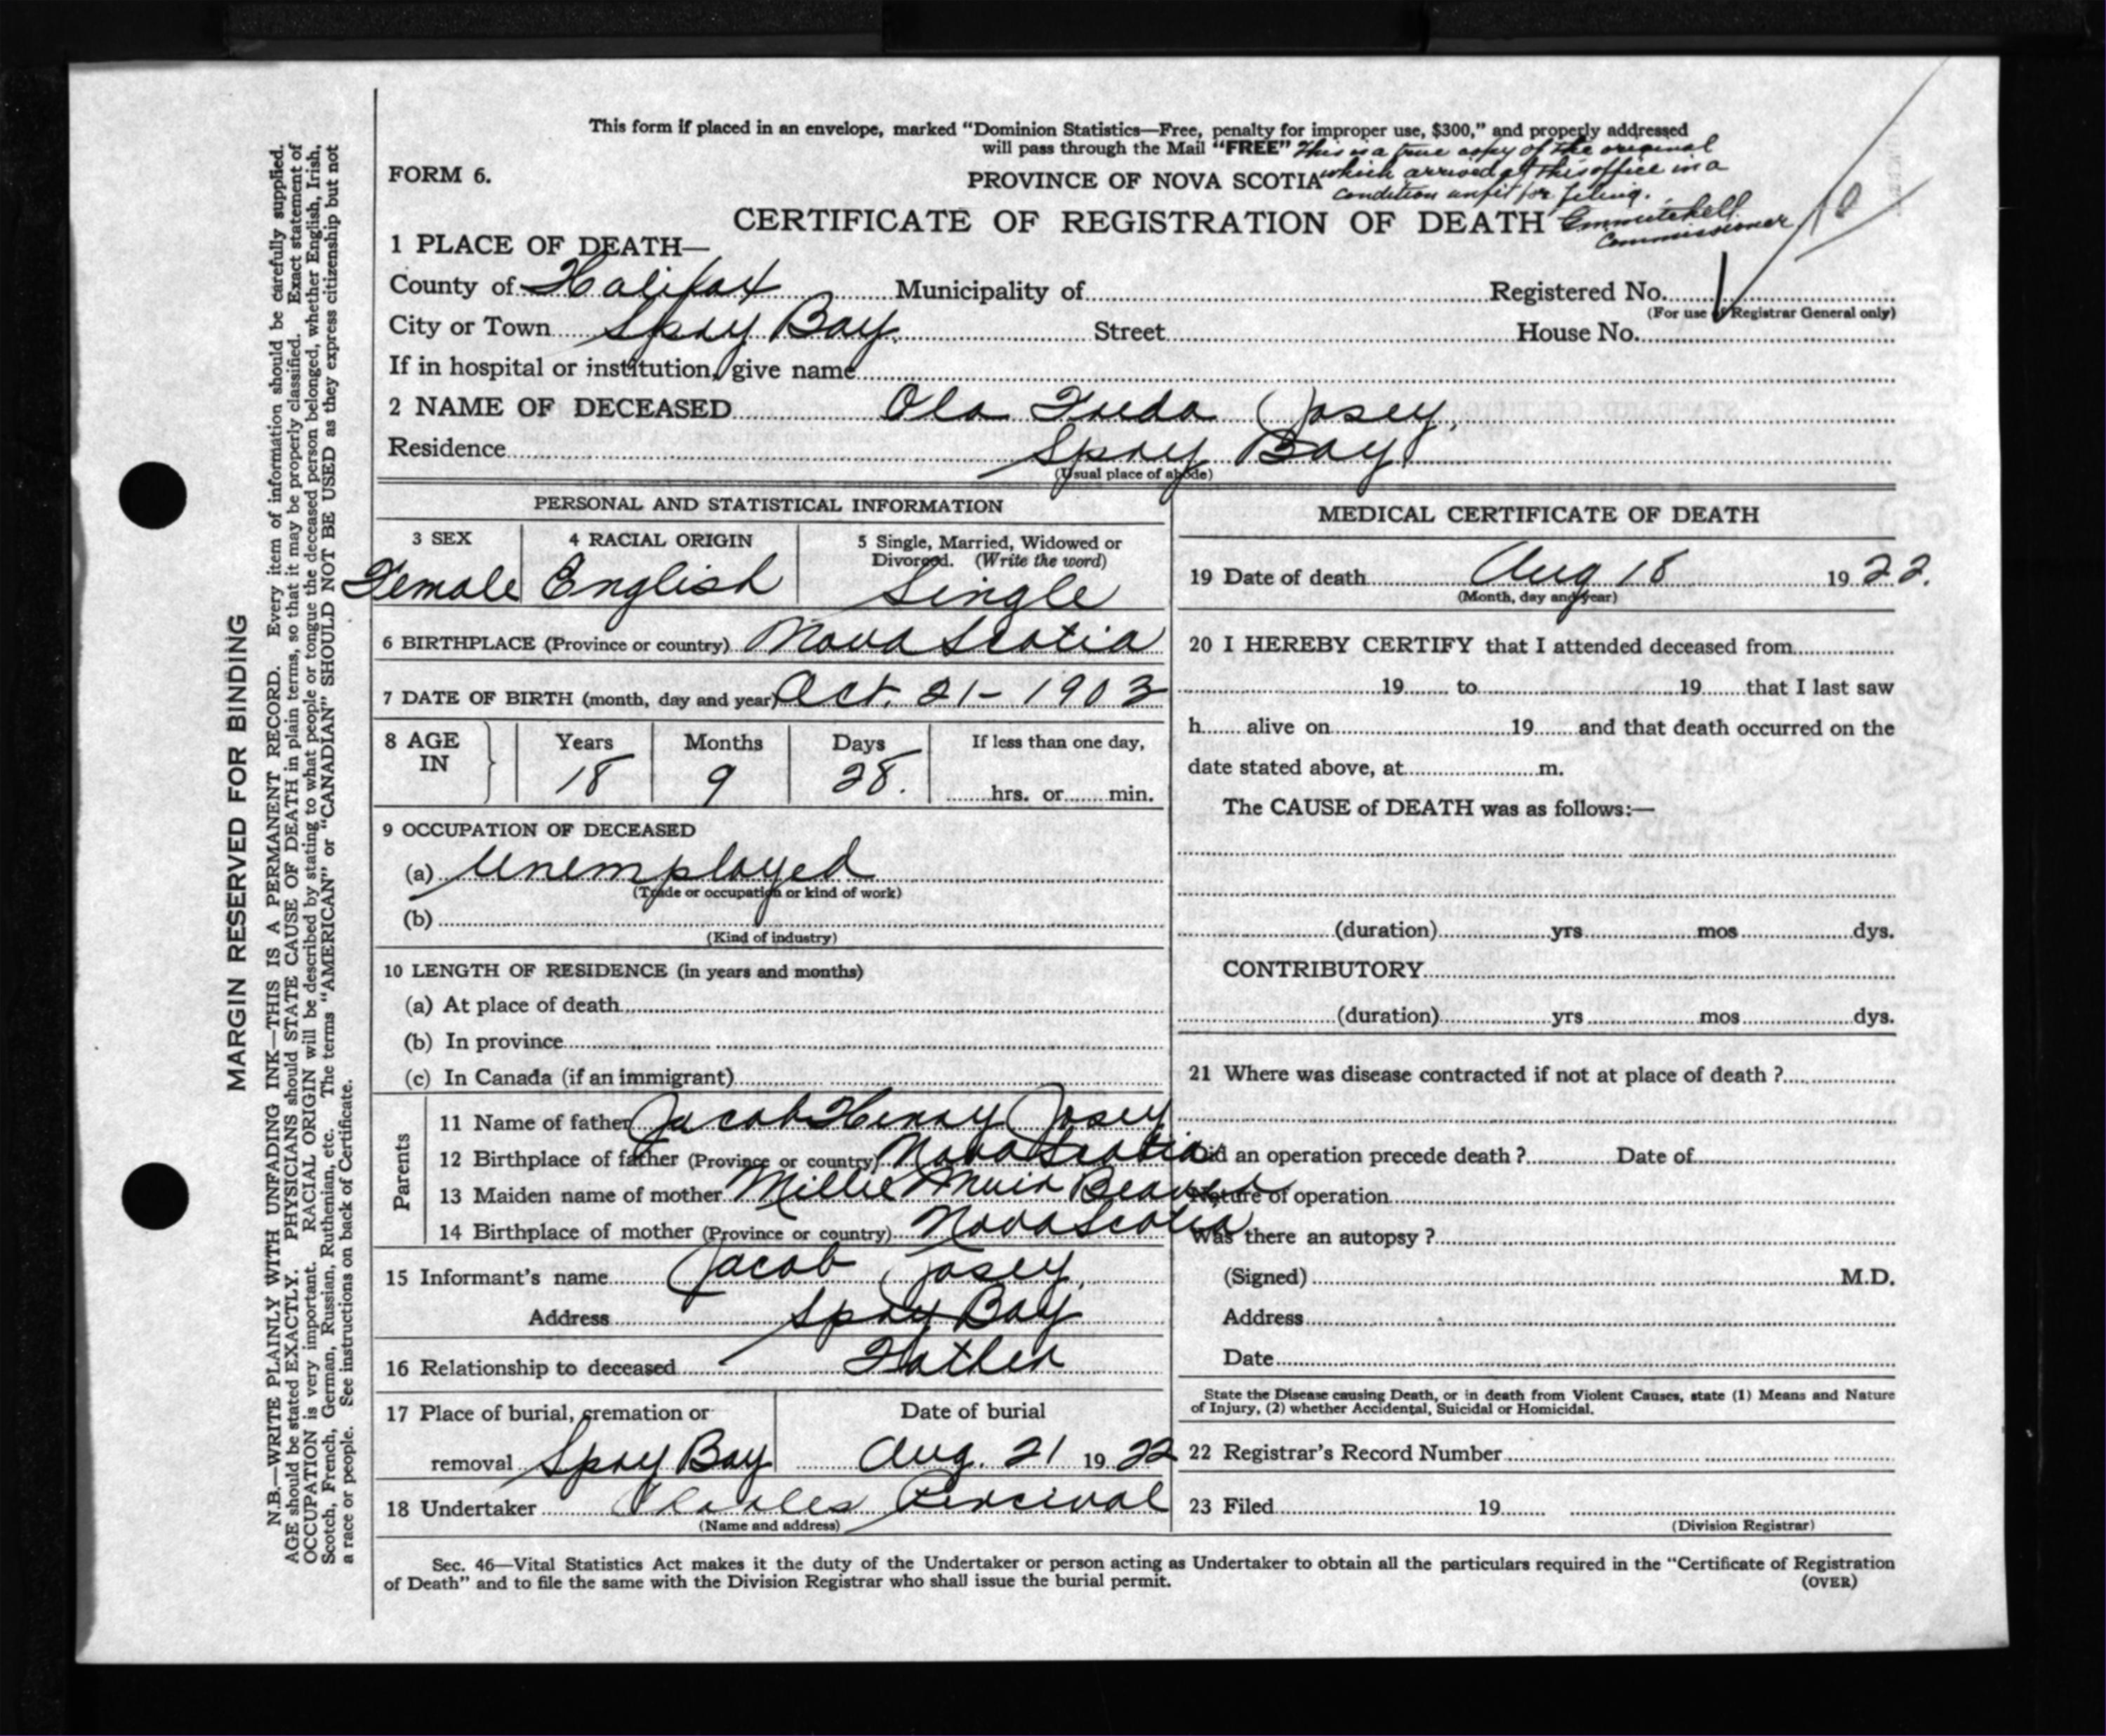 This form if placed in an envelope, marked “Dominion Statistics—Free, penalty for improper use, $300,” and properly addressed
will pass through the Mail “FREE” This is a true copy of the original
which arrived at this office in a
condition unfit for filing.
Commissioner
FORM 6.
PROVINCE OF NOVA SCOTIA
CERTIFICATE OF REGISTRATION OF DEATH
10
1 PLACE OF DEATH—
County of Halifax Municipality of Registered No.
(For use of Registrar General only)
City or Town Spry Bay. Street House No.
If in hospital or institution, give name
2 NAME OF DECEASED Ola Freda Josey,
Residence Spry Bay
(Usual place of abode)
PERSONAL AND STATISTICAL INFORMATION
3 SEX 4 RACIAL ORIGIN 5 Single, Married, Widowed or
Divorced. (Write the word)
Female English Single
6 BIRTHPLACE (Province or country) Nova Scotia
7 DATE OF BIRTH (month, day and year) Oct. 21 - 1903
8 AGE IN Years Months Days If less than one day,
18 9 28. hrs. or min.
9 OCCUPATION OF DECEASED
(a) Unemployed
(Trade or occupation or kind of work)
(b)
(Kind of industry)
10 LENGTH OF RESIDENCE (in years and months)
(a) At place of death
(b) In province
(c) In Canada (if an immigrant)
Parents
11 Name of father Jacob Henry Josey
12 Birthplace of father (Province or country) Nova Scotia
13 Maiden name of mother Millie Muir Beaver
14 Birthplace of mother (Province or country) Nova Scotia
15 Informant's name Jacob Josey,
Address Spry Bay
16 Relationship to deceased Father
17 Place of burial, cremation or Date of burial
removal Spry Bay Aug. 21 1922
18 Undertaker Charles Percival
(Name and address)
MEDICAL CERTIFICATE OF DEATH
19 Date of death Aug 18 1922.
(Month, day and year)
20 I HEREBY CERTIFY that I attended deceased from
19 to 19 that I last saw
h alive on 19 and that death occurred on the
date stated above, at m.
The CAUSE of DEATH was as follows:—
(duration) yrs mos dys.
CONTRIBUTORY
(duration) yrs mos dys.
21 Where was disease contracted if not at place of death ?
Did an operation precede death ? Date of
Nature of operation
Was there an autopsy ?
(Signed) M.D.
Address
Date
State the Disease causing Death, or in death from Violent Causes, state (1) Means and Nature
of Injury, (2) whether Accidental, Suicidal or Homicidal.
22 Registrar's Record Number
23 Filed 19
(Division Registrar)
Sec. 46—Vital Statistics Act makes it the duty of the Undertaker or person acting as Undertaker to obtain all the particulars required in the “Certificate of Registration
of Death” and to file the same with the Division Registrar who shall issue the burial permit.
(OVER)
MARGIN RESERVED FOR BINDING
N.B.—WRITE PLAINLY WITH UNFADING INK—THIS IS A PERMANENT RECORD. Every item of information should be carefully supplied.
AGE should be stated EXACTLY. PHYSICIANS should STATE CAUSE OF DEATH in plain terms, so that it may be properly classified. Exact statement of
OCCUPATION is very important. RACIAL ORIGIN will be described by stating to what people or tongue the deceased person belonged, whether English, Irish,
Scotch, French, German, Russian, Ruthenian, etc. The terms “AMERICAN” or “CANADIAN” SHOULD NOT BE USED as they express citizenship but not
a race or people. See instructions on back of Certificate.